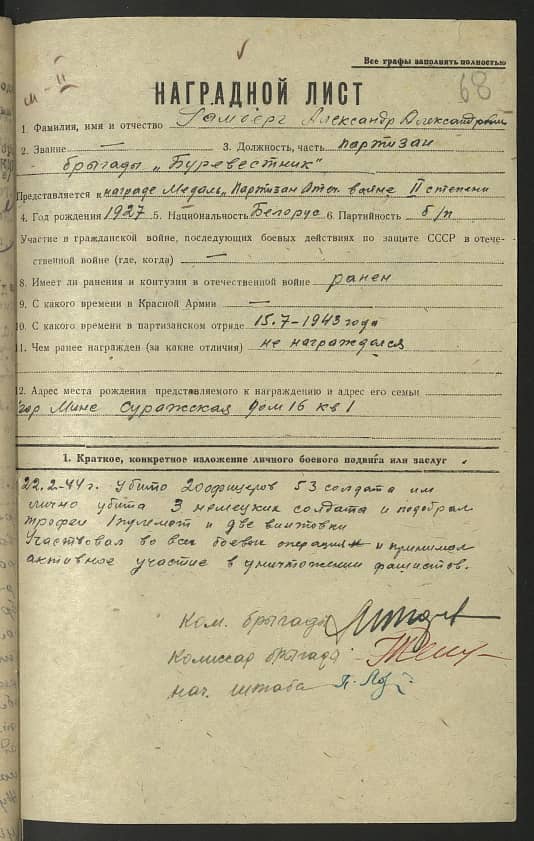 Все графы заполнять полностью
68
м-II
НАГРАДНОЙ ЛИСТ
1. Фамилия, имя и отчество Гамберг Александр Александрович
2. Звание — 3. Должность, часть партизан
брыгады „Буревестник"
Представляется к награде Медаль „Партизан Отеч войне II степени
4. Год рождения 1927 5. Национальность Белорус 6. Партийность б/п
Участие в гражданской войне, последующих боевых действиях по защите СССР в отече-
ственной войне (где, когда) —
8. Имеет ли ранения и контузии в отечественной войне ранен
9. С какого времени в Красной Армии —
10. С какого времени в партизанском отряде 15.7-1943 года
11. Чем ранее награжден (за какие отличия) не награждался
12. Адрес места рождения представляемого к награждению и адрес его семьи
гор Минс Суражская дом 16 кв 1
1. Краткое, конкретное изложение личного боевого подвига или заслуг
22.2-44 г. убито 20 офицеров 53 солдата им
лично убита 3 немецких солдата и подобрал
трофеи 1 пулемот и две винтовки
Участвовал во всех боевых операциях и принимал
активное участие в уничтожении фашистов.
Ком. брыгады
Комиссар брыгады
нач. штаба